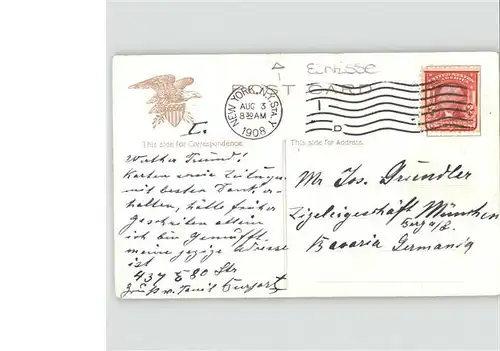 Einlisse
POST CARD
NEW YORK, N.Y. STA. Y
AUG 3
8 30 AM
1908
I.
This side for Correspondence.
This side for Address.
Werther Freund!
Karten sowie Zeitungen
mit besten Dank er-
halten, hätte früher
geschrieben allein
ich bin
meine jezige Adresse
ist
437 E 80 Str
Gruß v.
Mr Jos. Gründler
Zigeleigeschäft München
Berg a/L.
Bavaria Germany